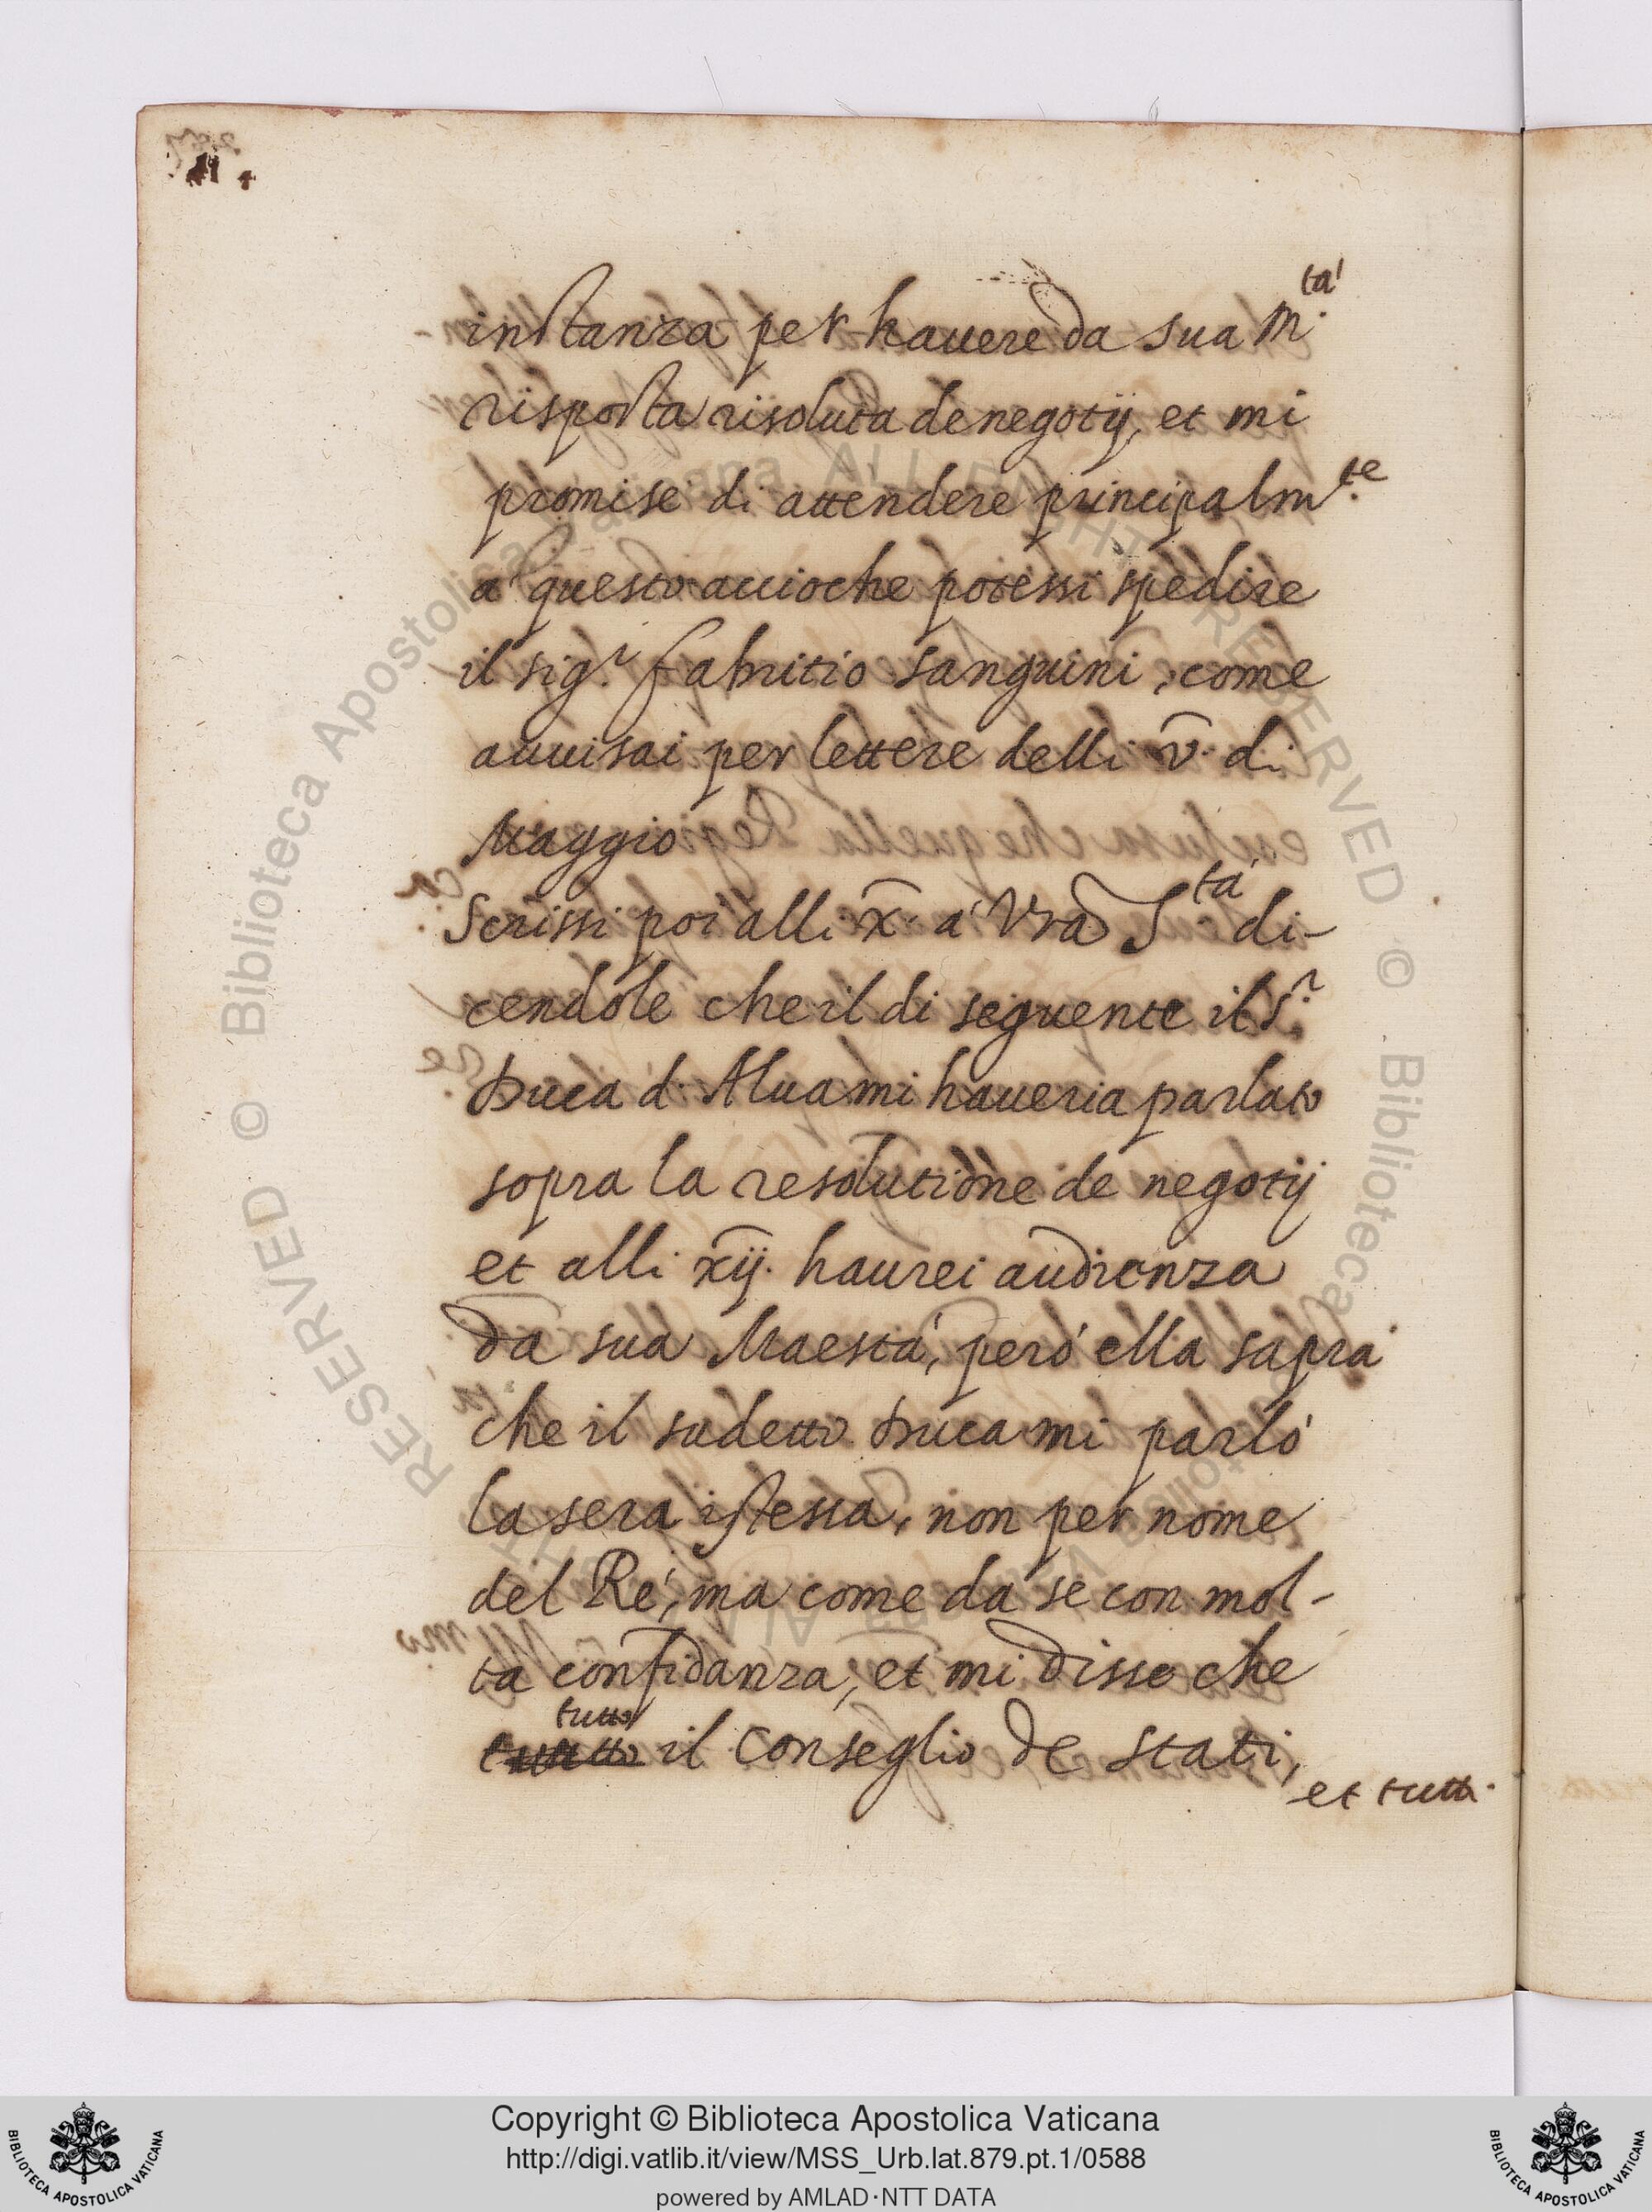 instanza per hauere da sua M.tà
risposta risoluta de negotij, et mi
promise di attendere principalm.te
a questo accioche potessi spedire
il sig.r fabritio sanguini, come
auuisai per lettere delli v. di
Maggio
Scrissi poi alli x. à Vra S.tà di-
cendole che il di seguente il S.r
Duca d. Alua mi haueria parlato
sopra la resolutione de negotij
et alli xij. haurei audienza
da sua Maestà, però ella saprà
che il sudetto Duca mi parlò
la sera istessa, non per nome
del Rè, ma come da se con mol-
ta confidanza, et mi disse che
tutto il Conseglio de stati,
et tutti
Biblioteca Apostolica Vaticana ALL RIGHT RESERVED ©
Copyright © Biblioteca Apostolica Vaticana
http://digi.vatlib.it/view/MSS_Urb.lat.879.pt.1/0588
powered by AMLAD·NTT DATA
BIBLIOTECA APOSTOLICA VATICANA
BIBLIOTECA APOSTOLICA VATICANA